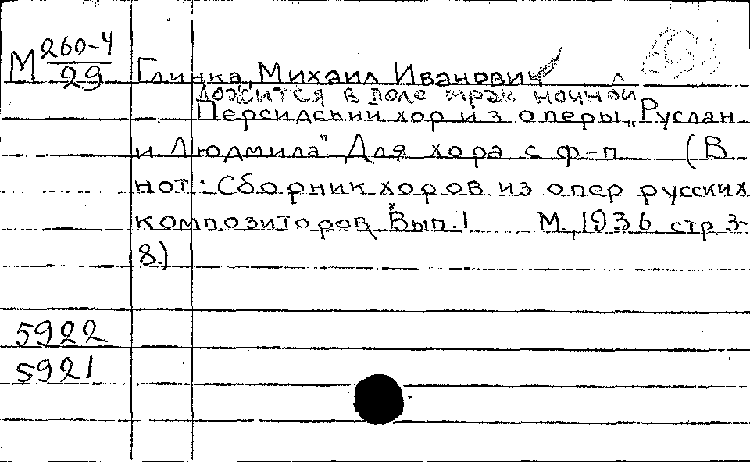 М 260-4
29
Глинка, Михаил Иванович
Ложится в поле мрак ночной
Персидский хор из оперы "Руслан
и Людмила" Для хора с ф-п (В
нот: Сборник хоров из опер русских
композиторов, Вып. 1 М., 1936 стр 3-
8)
5922
5921